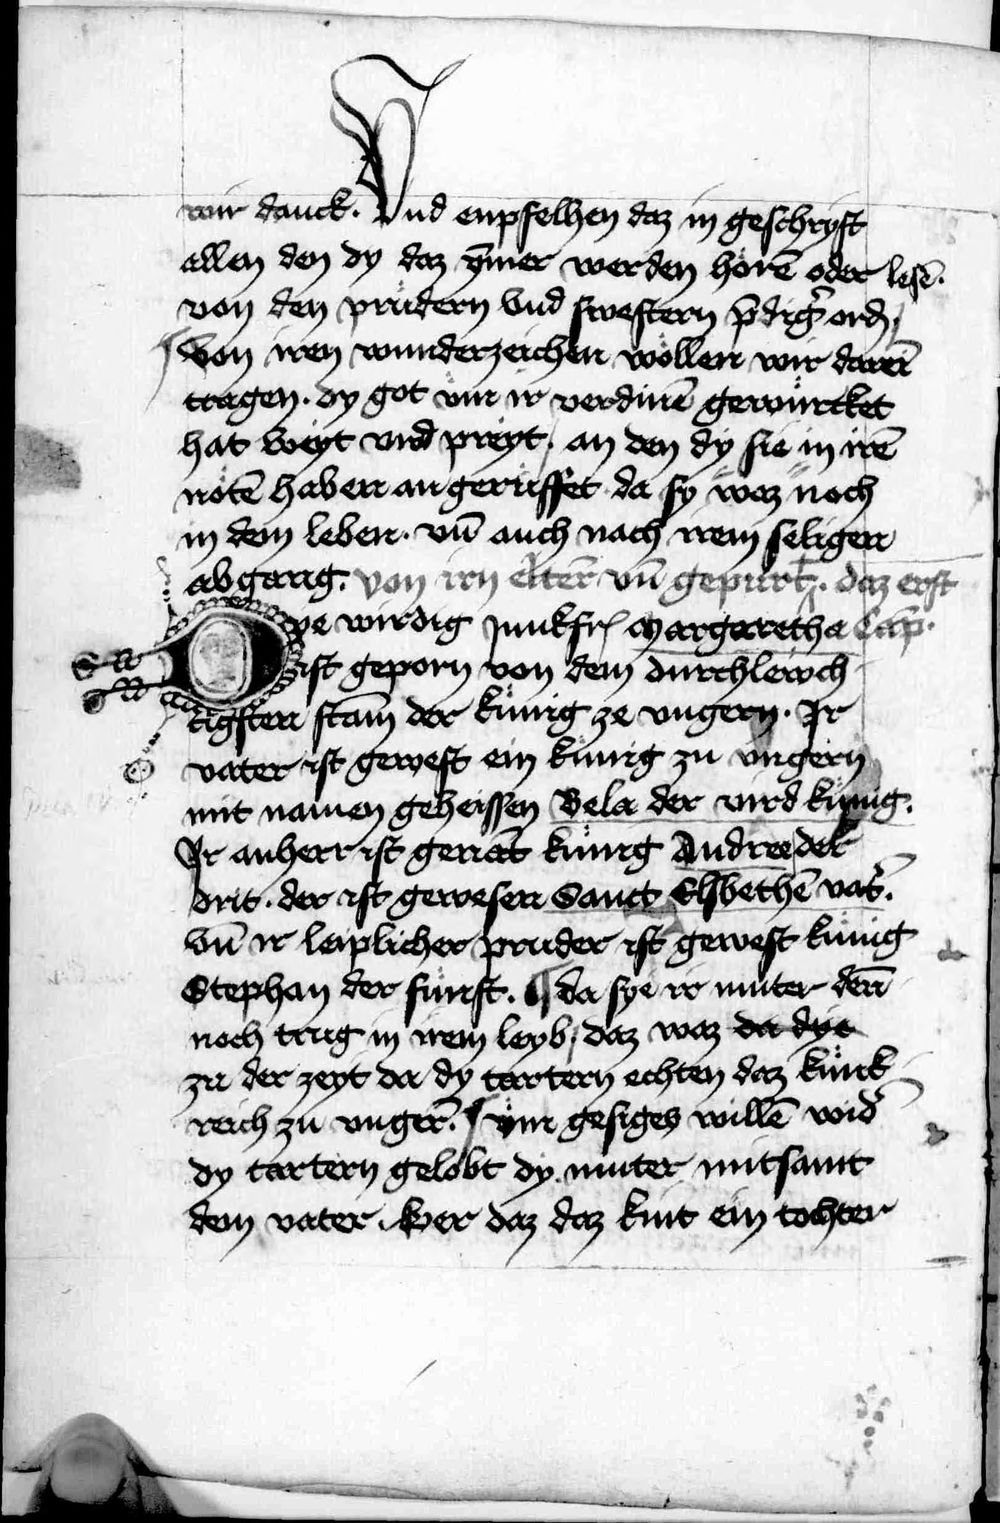 wir danck. Vnd enpfelhen daz in geschryft
allen den dy daz ÿmer werden hörē oder lesē.
von den prüdern vnd swestern p̄dig̑ ord̑
Von iren wunderzeichen wöllen wir darein
tragen. dy got üm ir verdinē gewürcket
hat weyt vnd preyt. an den dy sie in irē
nötē haben angerüffet da sy waz noch
in dem leben. vn̄ auch nach irem seligen
abgang. von irn eltern vn̄ gepurt. daz erst
Dye wirdig junkfȓ Margaretha Cap.
ist geporn von dem durchlewch
tigsten stam̄ der künig ze vngern. Ir
vater ist gewest ein künig zu vngern
mit namen geheissen Bela der vird künig.
Ir anherr ist genant künig Andree der
drit. der ist gewesen Sanct Elsbethē vat̑.
Vn̄ ir leiplicher pruder ist gewest künig
Stephan der fünft. ¶ da sye ir muter deñ
noch trug in irem leyb, daz waz da dye
zu der zeyt da dy tartern echten daz künk
reich zu vnger̄. vm gesiges willē wid̑
dy tartern gelobt dy muter mitsamt
dem vater. Wer daz daz kint ein tochter